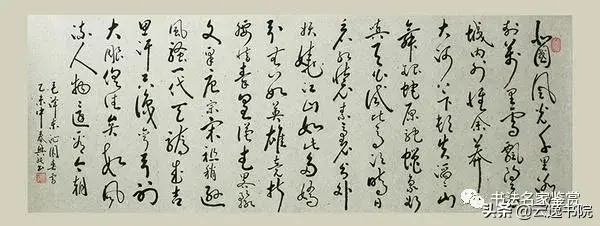 北國風光千里冰
封万里雪飘望長
城内外惟余莽莽
大河上下顿失滔滔山
舞银蛇原驰蜡象欲
與天公试比高须晴日
看红装素裹分外
妖娆江山如此多娇
引無数英雄竞折
腰惜秦皇汉武略输
文采唐宗宋祖稍逊
風骚一代天骄成吉
思汗只识弯弓射
大雕俱往矣数風
流人物還看今朝
毛泽东沁园春雪
乙未
书法名家鉴赏
头条 @云逸书院